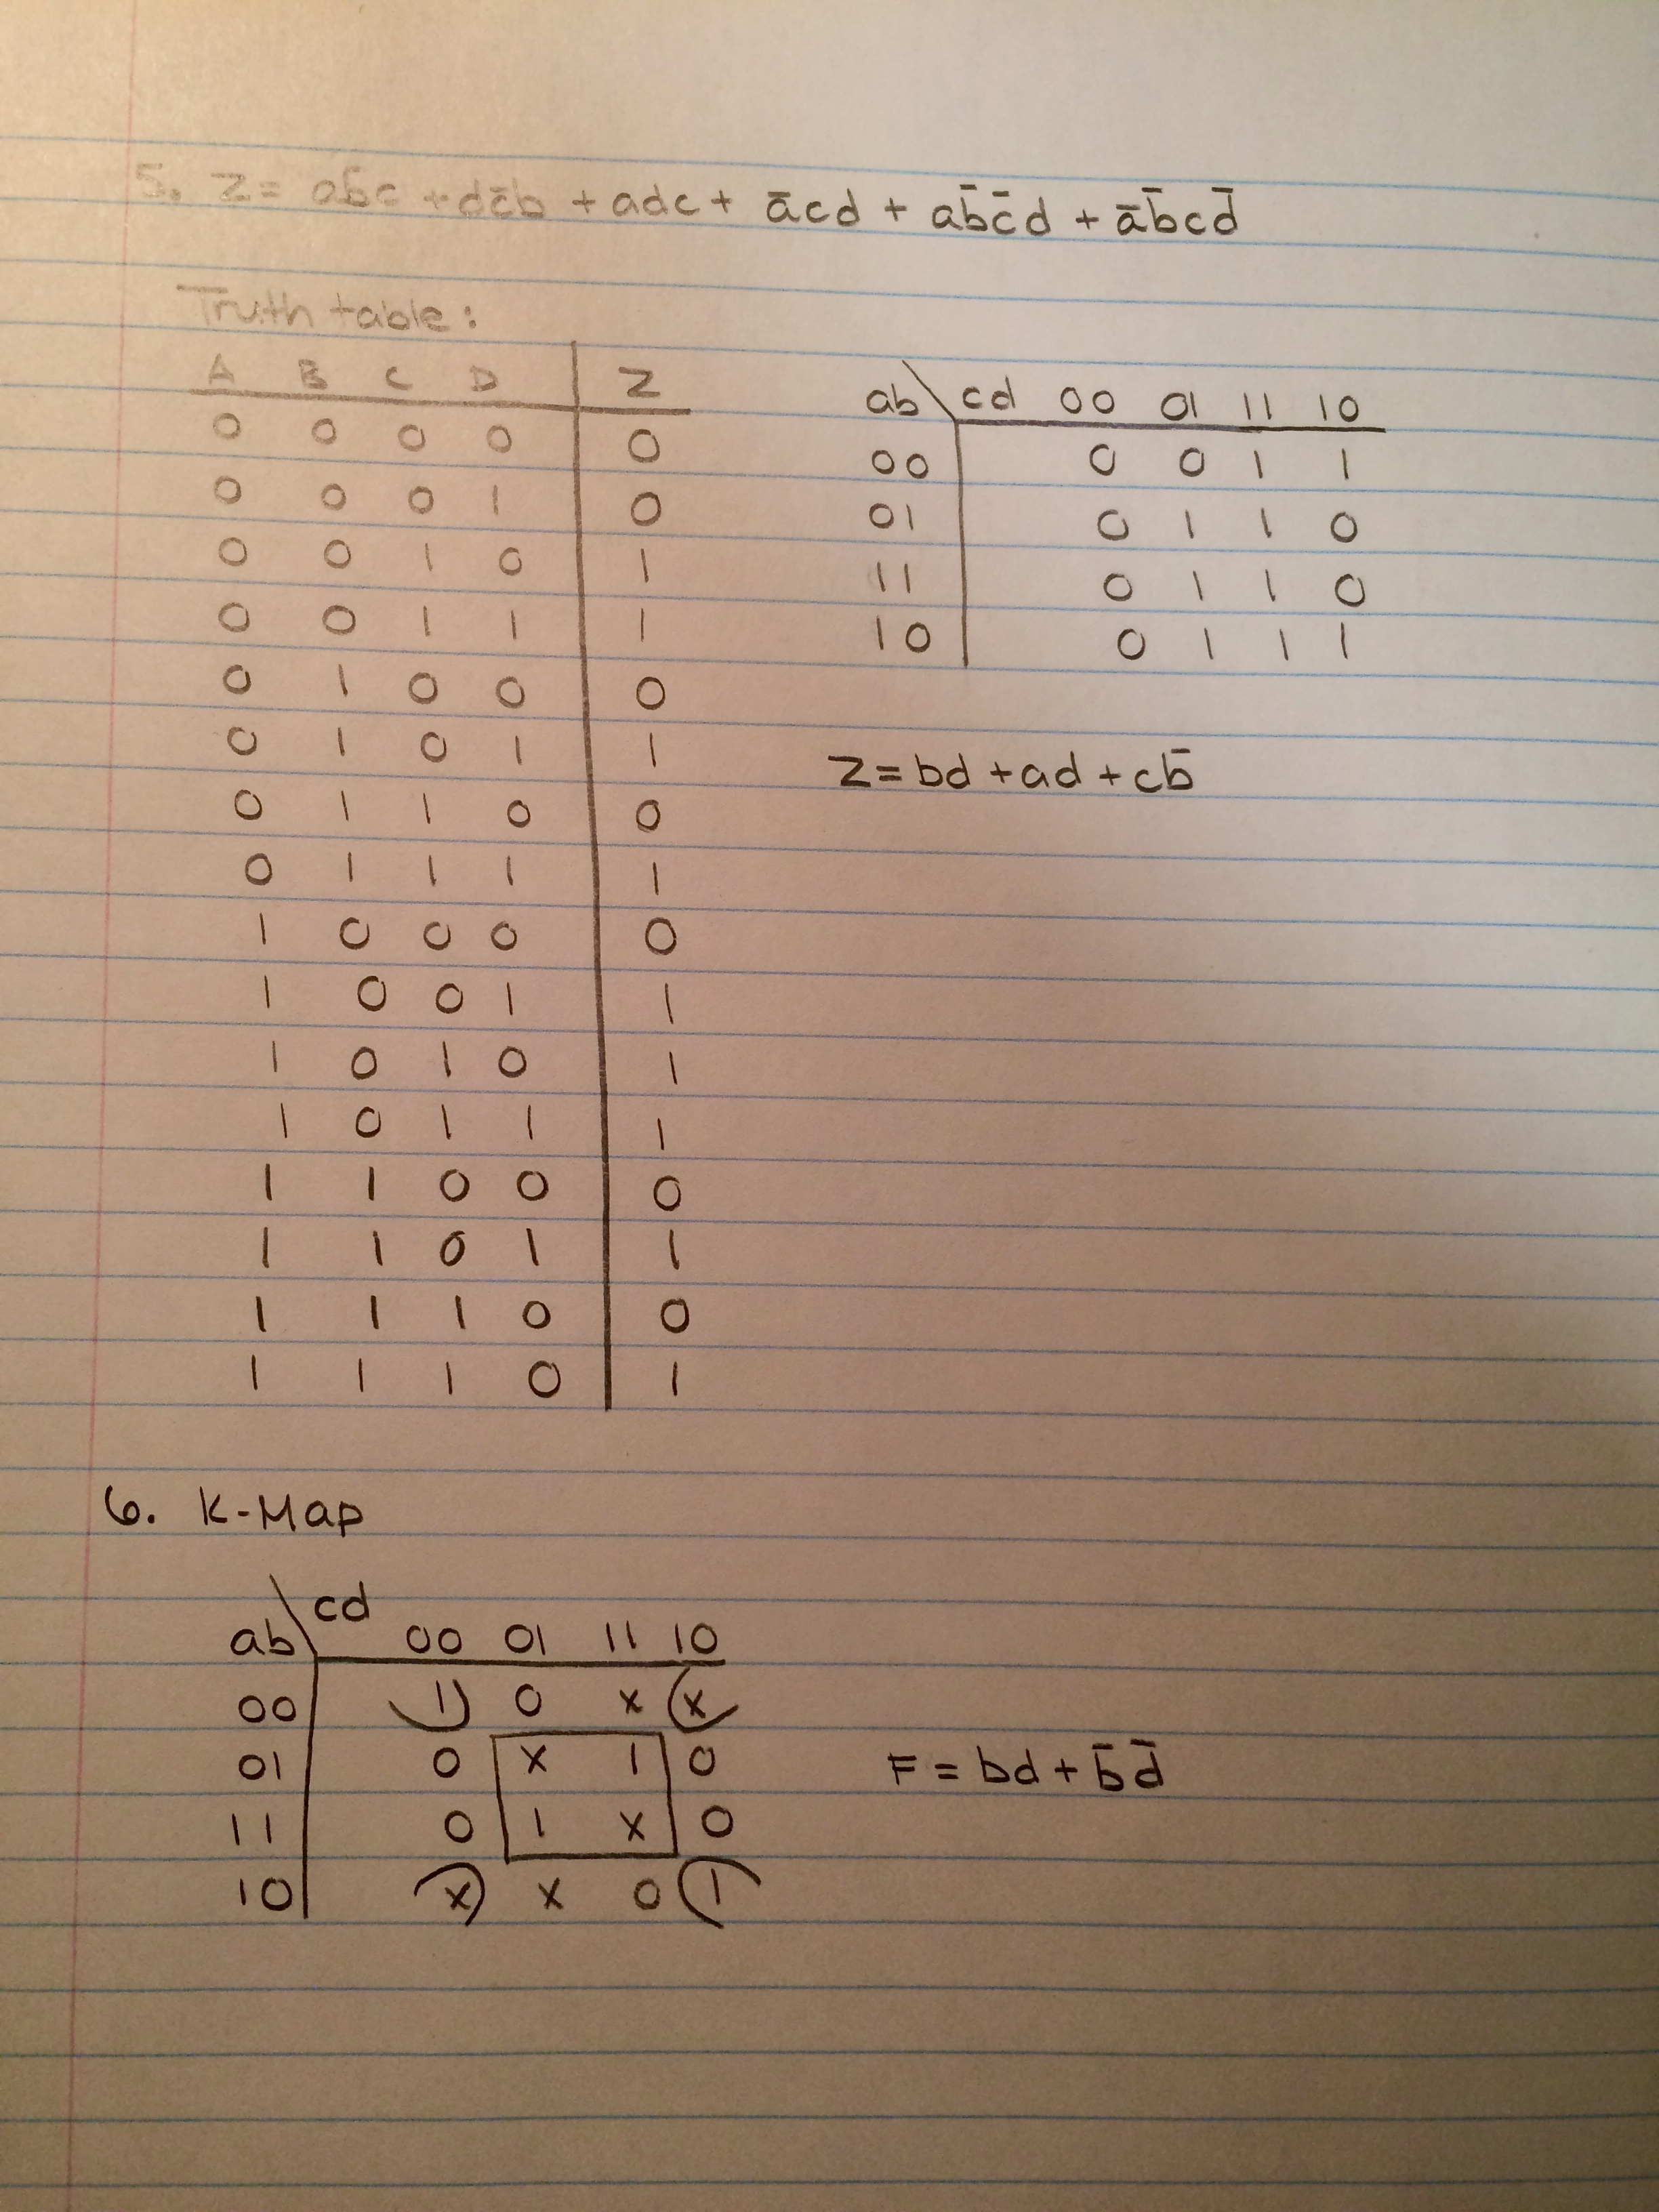 5. Z = ab̄c + dc̄b + adc + ācd + ab̄c̄d + āb̄cd̄
Truth table:
A B C D Z
0 0 0 0 0
0 0 0 1 0
0 0 1 0 1
0 0 1 1 1
0 1 0 0 0
0 1 0 1 1
0 1 1 0 0
0 1 1 1 1
1 0 0 0 0
1 0 0 1 1
1 0 1 0 1
1 0 1 1 1
1 1 0 0 0
1 1 0 1 1
1 1 1 0 0
1 1 1 0 1
ab\cd 00 01 11 10
00 0 0 1 1
01 0 1 1 0
11 0 1 1 0
10 0 1 1 1
Z = bd + ad + cb̄
6. K-Map
ab\cd 00 01 11 10
00 1 0 x x
01 0 x 1 0
11 0 1 x 0
10 x x 0 1
F = bd + b̄d̄